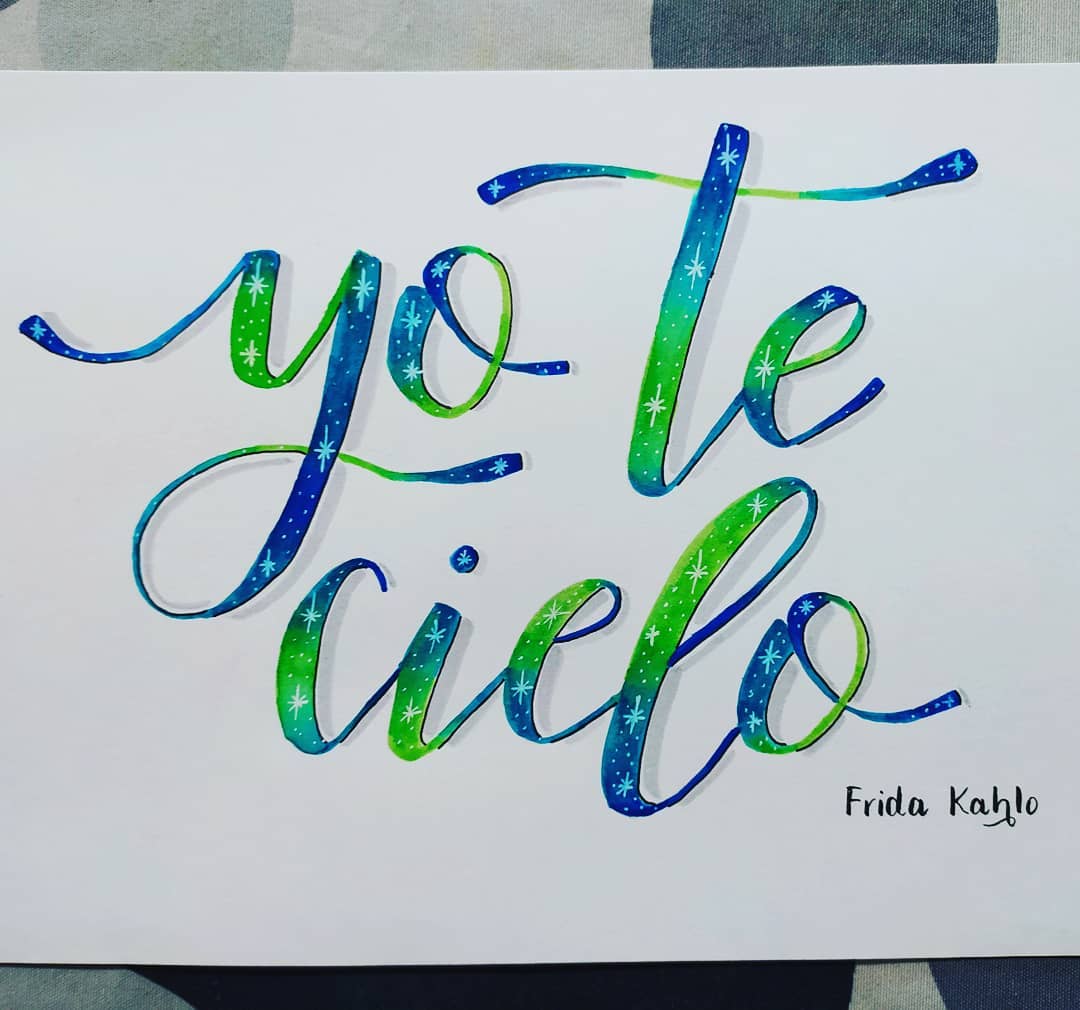 yo te
cielo
Frida Kahlo